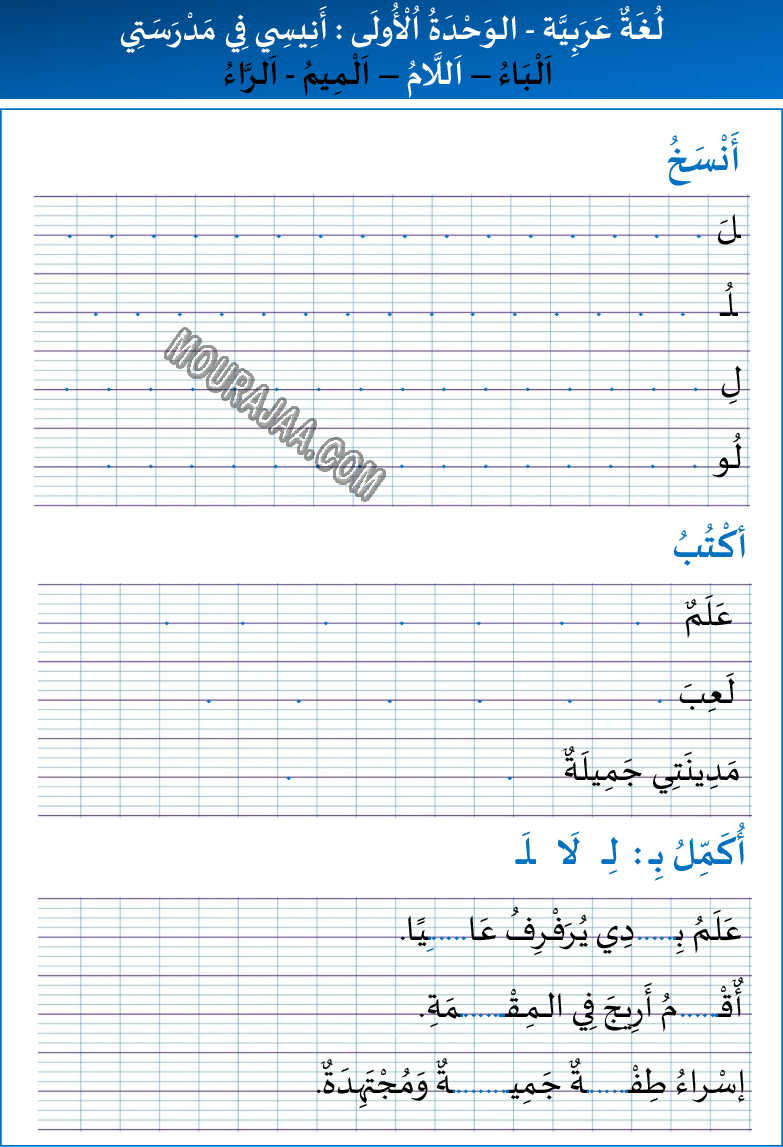 لُغَةٌ عَرَبِيَّة - الوَحْدَةُ اُلْأُولَى : أَنِيسِي فِي مَدْرَسَتِي
اَلْبَاءُ – اَللَّامُ – اَلْمِيمُ - اَلرَّاءُ
أَنْسَخُ
لَ
لُـ
لِ
لُو
MOURAJAA.COM
أكْتُبُ
عَلَمٌ
لَعِبَ
مَدِينَتِي جَمِيلَةٌ
أُكَمِّلُ بِـ : لِـ لَا لَـ
عَلَمُ بِـ.....دِي يُرَفْرِفُ عَا.....ـِيًا.
أٌقْـ.....مُ أَرِيجَ فِي المِقْـ.....ـمَةِ.
إسْراءُ طِفْـ.....ـةٌ جَمِيـ.......ـةٌ وَمُجْتَهِدَةٌ.